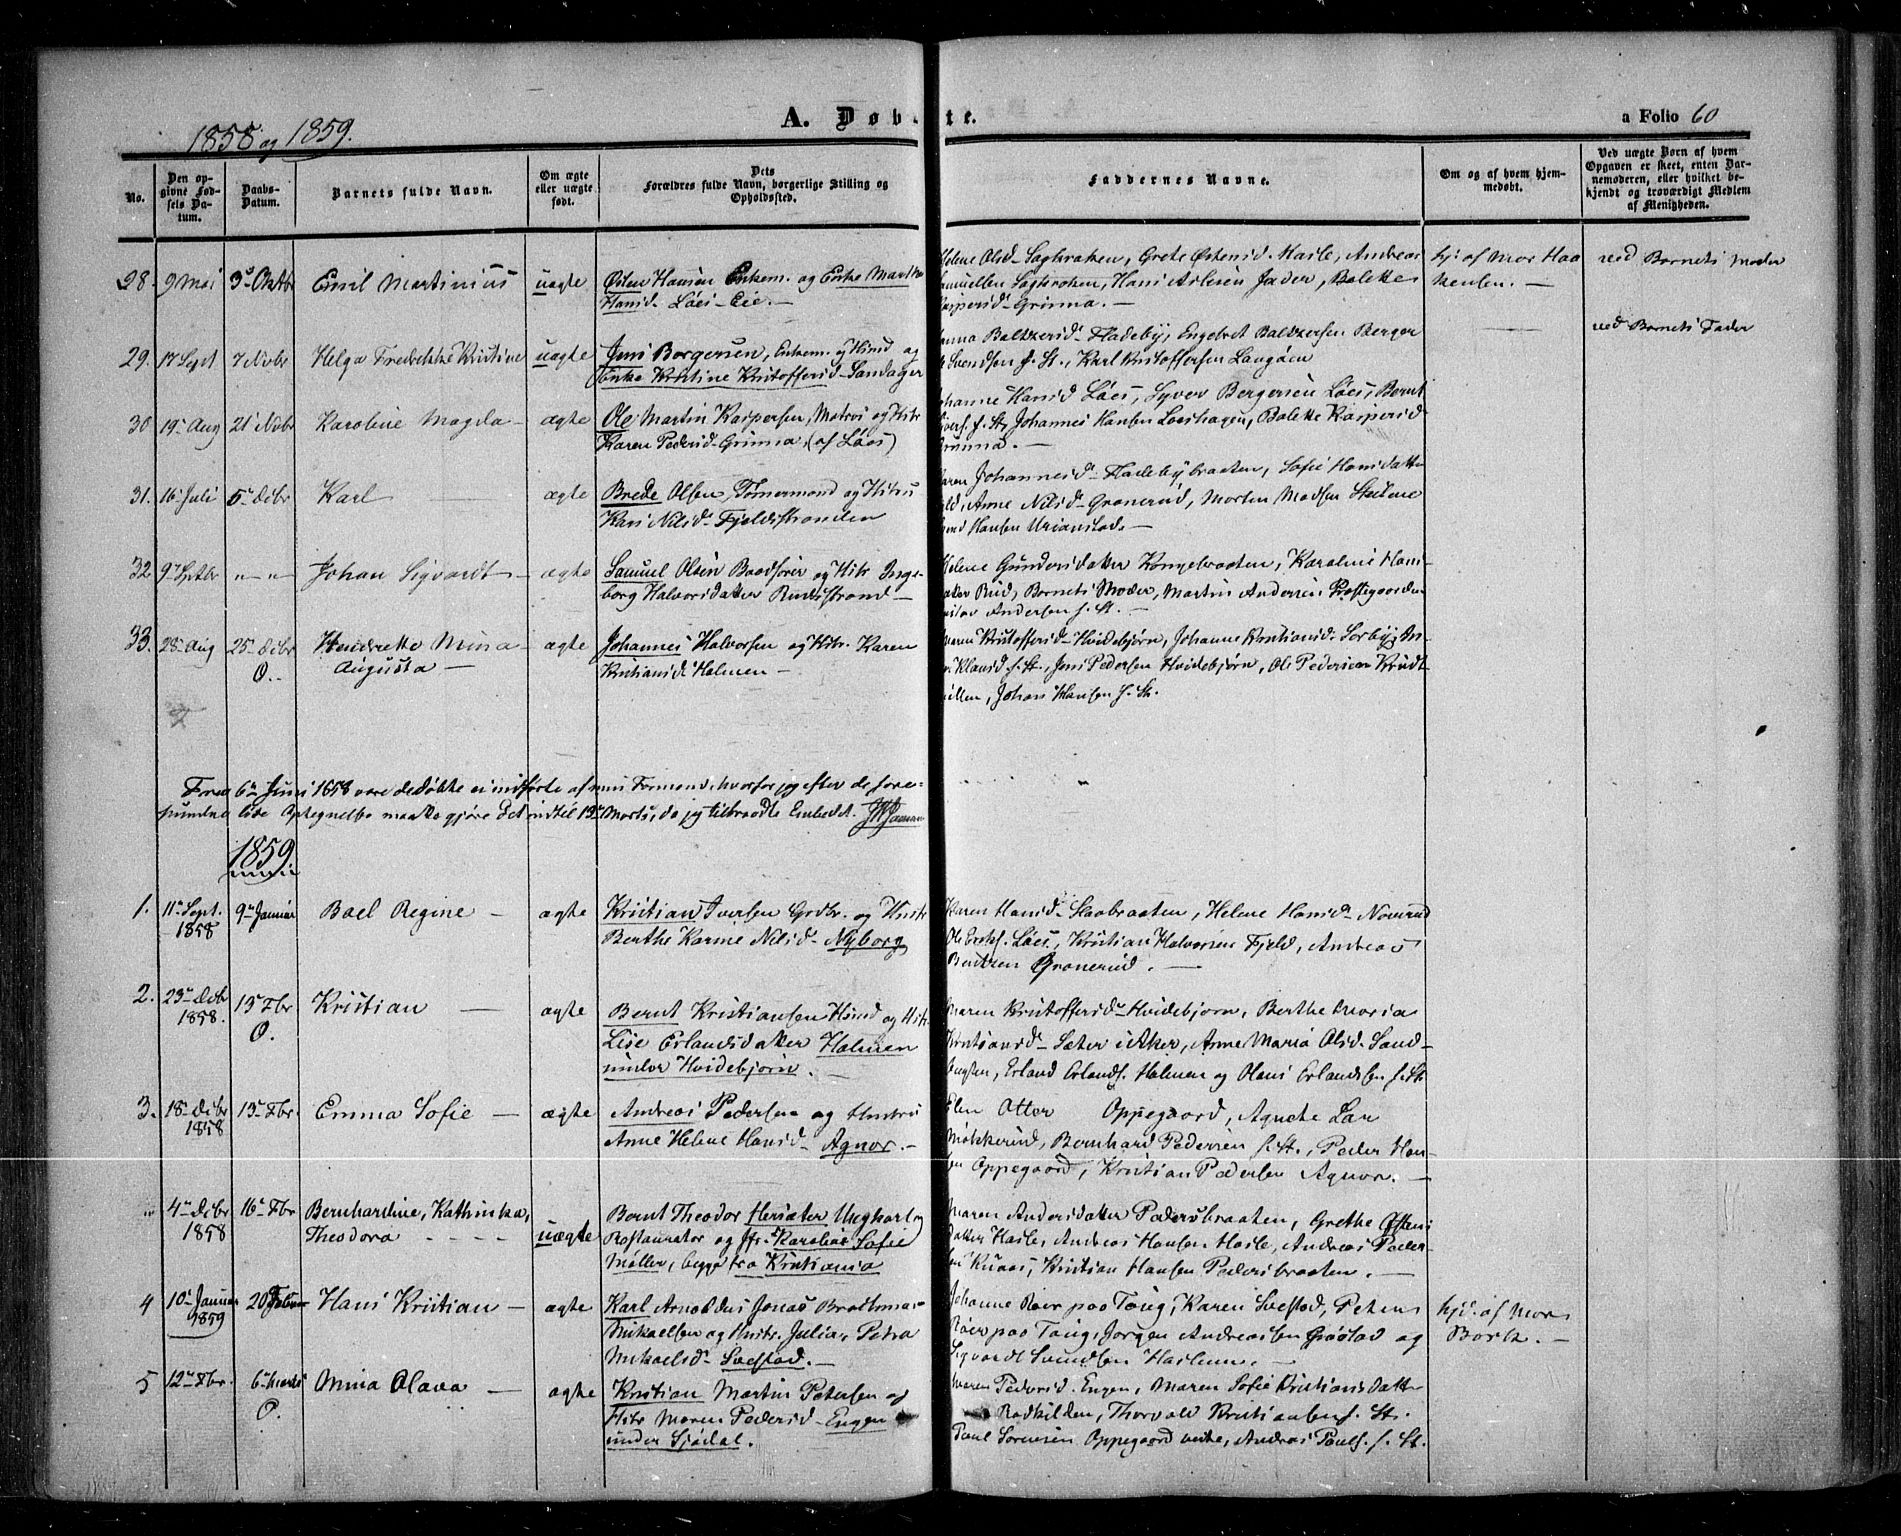 A. Døbte.
a Folio 60
1858 og 1859.
No.
Den opgivne Fødsels Datum.
Daabs-Datum.
Barnets fulde Navn.
Om ægte eller uægte født.
Dets Forældres fulde Navn, borgerlige Stilling og Opholdssted.
Faddernes Navne.
Om og af hvem hjemmedøbt.
Ved uægte Børn af hvem Opgaven er skeet, enten Barnemoderen, eller hvilket bekjendt og troværdigt Medlem af Menigheden.
28. 9 Mai 3 Oktbr Emil Martinius uægte Østen Hansen Enkem. og Enke Marthe
Hansd. Løes-Eie.—
Helene Olsd. Sagbraaten, Grete Østensd. Hasle, Andreas
Samuelsen Sagbraaten, Hans Jader, Bolette
Kaspersd. Grinna.—
hj. af Mor Haa
kensen.—
ved Barnets Moder
29. 17 Sept 7 Novbr Helga Fredrikke Kristine uægte Jens Borgersen, Enkem. og Hmd og
Enke Kristine Kristoffersd. Sandager
Baltzersd. Fladeby, Engebret Baltzersen Berger
Svendsen f. St., Karl Kristoffersen Langøen
ved Barnets Fader
30 19 Aug 21 Novbr Karoline Magda — ægte Ole Martin Kaspersen, Matros og Hstr
Karen Pedersd. Grinna, (af Løes)
Johanne Hansd Løes, Syver Bergersen Løes, Bernt
f. St, Johannes Hansen Løeshagen, Bolette Kaspersd.
Grinna.—
31. 16 Juli 5 Decbr Karl — ægte Brede Olsen, Tømermand og Hstru
Kari Nilsd. Fjeldstranden
Karen Johannesd. Fladebybraaten, Sofie Hansdatter
Anne Nilsd. Granerud, Morten Madsen Steilene
Hansen Urianstad.—
32 9 Septbr " — " Johan Sigvardt — ægte Samuel Olsen Baadfører og Hstr Inge-
borg Halvorsdatter Rudsstrand —
Helene Gundersdatter Kongebraaten, Karoline Hans-
datter Rud, Barnets Moder, Martin Andersen Præstegaarden
Andersen f. St.—
33. 28 Aug 25 Decbr
O.
Hendrette Mina
Augusta —
ægte Johannes Halvorsen og Hstr. Karen
Kristiansd. Holmen —
Maren Kristoffersd. Hvidebjørn, Johanne Kristiansd. Sorby,
Klausd. f. St., Jens Pedersen Hvidebjørn, Ole Pedersen Krudt-
møllen, Johan Hansen f. St.
Fra 6te Juni 1858 vare de Døbte ei indførte af min Formand, hvorfor jeg efter de fore-
fundne Optegnelse maatte gjøre det indtil 13 Marts, da jeg tiltraadte Embedet.
1859.
1. 11 Sept.
1858
9 Januar Bael Regine — ægte Kristian Iversen Grdbr. og Hustr
Berthe Karine Nilsd. Nyborg
Karen Hansd. Skaubraaten, Helene Hansd. Nordrud
Ole Løes, Kristian Halvorsen Fjeld, Andreas
Berntzen Granerud.—
2. 23 Decbr
1858.
13 Fbr
O.
Kristian — ægte Bernt Kristiansen Hmd og Hstr.
Lise Erlandsdatter Holmen
under Hvidebjørn.—
Maren Kristoffersd. Hvidebjørn, Berthe Maria
Kristiansd. Sæter i Aker, Anne Maria Olsd. Sand-
bugten, Erland Erlands. Holmen og Olaus Erlandsen f. St.
3. 18 Decbr
1858
13 Fbr. Emma Sofie — ægte Andreas Pedersen og Hustru
Anne Helene Hansd. Agnor.—
Elen Otter Oppegaard, Agnete Lar
Møkkerud, Bernhard Pedersen f. St., Peder Han-
sen Oppegaard, Kristian Pedersen Agnor.—
" 4 Decbr
1858
16 Fbr Bernhardine, Kathinka,
Theodora - - - -
uægte Bernt Theodor Hersæter Ungkarl og
Restauratør og fr. Karoline Sofie
Møller, begge fra Kristiania
Maren Andersdatter Pedersbraaten, Grethe Østens
datter Hasle, Andreas Hansen Hasle, Andreas Peder-
sen Kuaas, Kristian Hansen Pedersbraaten.—
4 10 Januar
1859
20 Februar Hans Kristian — ægte Karl Arnoldus Jonas
Mikaelsen og Hustr. Julia, Petra
Mikaelsd. Svestad.—
Johanne Røer paa Tang, Karen Svestad, Peter
Røer paa Tang, Jørgen Andreassen Graastad og
Sigvardt Svendsen Haslum.—
hjd. af Mor
Bark.—
5 12 Fbr. 6 Marts
O.
Mina Olava — ægte Kristian Martin Petersen og
Hstr Maren Pedersd. Engen
under Sjødal.
Maren Pedersd. Engen, Maren Sofie Kristiansdatter
Rødkilden, Thorvald Kristiansen f. St.
Paul Sørensen Oppegaard vestre, Andreas Pauls. f. St.